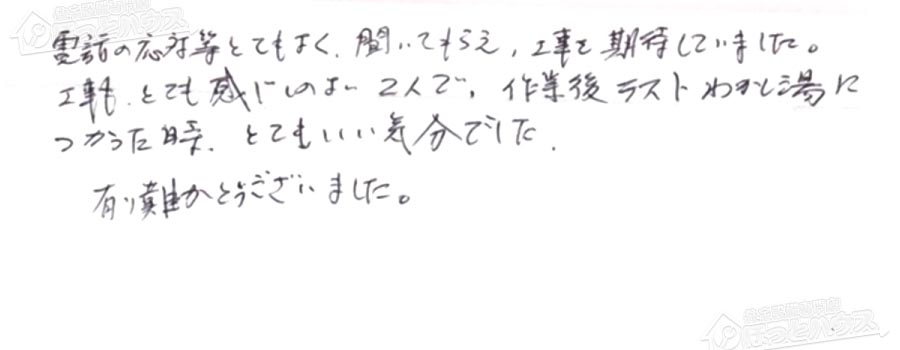 電話の応対等とてもよく、聞いてもらえ、工事を期待していました。
工事も、とても感じのよい2人で、作業後テストわかし湯に
つかった時、とてもいい気分でした.
有り難とうございました。
ほっとハウス
ほっとハウス